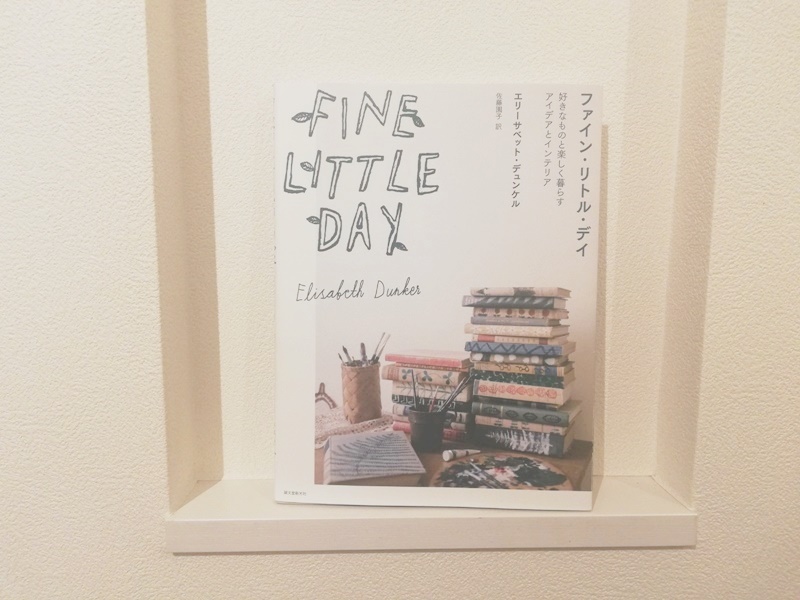 FINE
LITTLE
DAY
Elisabeth Dunker
ファイン・リトル・デイ
好きなものと楽しく暮らす
アイデアとインテリア
エリーサベット・デュンケル
佐藤園子 訳
誠文堂新光社